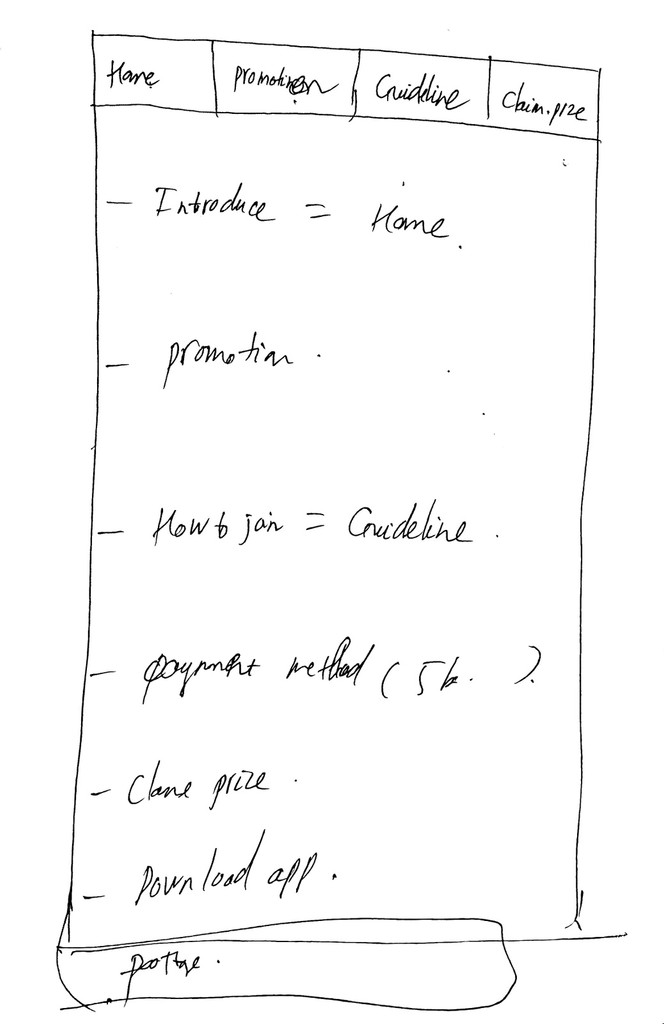 Home promotion Guideline Claim.prize
- Introduce = Home.
- promotion.
- How to join = Guideline.
- payment method ( 5k. ).
- Clame prize.
- Download app.